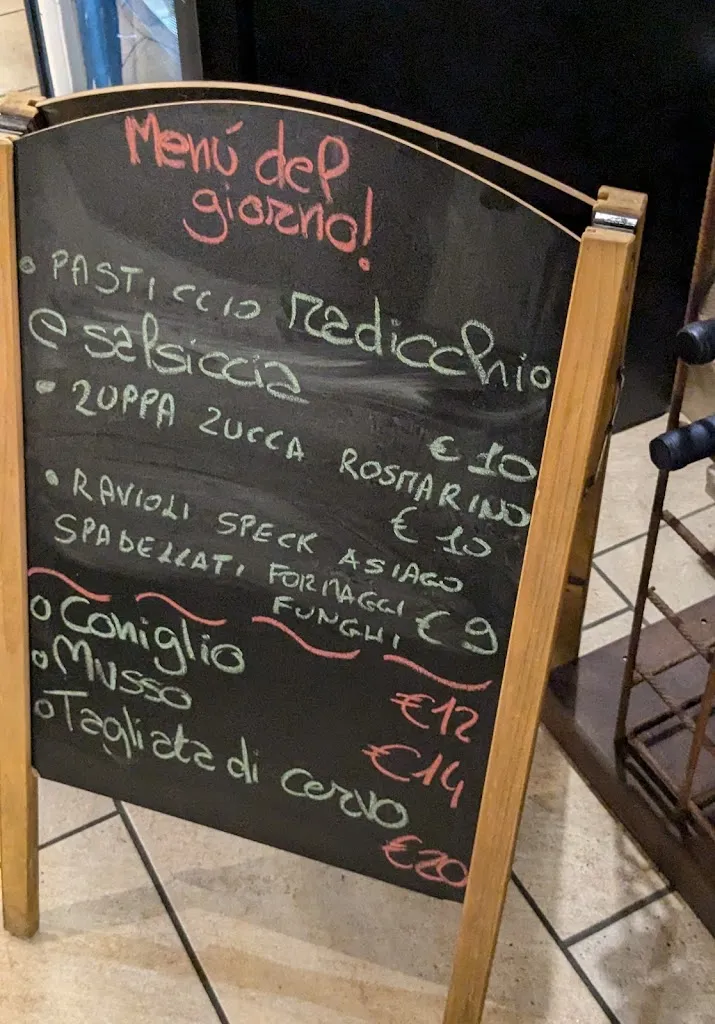 Menú del
giorno!
• PASTICCIO radicchio
e salsiccia
€ 10
• ZUPPA ZUCCA ROSMARINO
€ 10
• RAVIOLI SPECK ASIAGO
SPADELLATI FORMAGGI
FUNGHI € 9
o Coniglio
€12
o Musso
€14
o Tagliata di cervo
€20